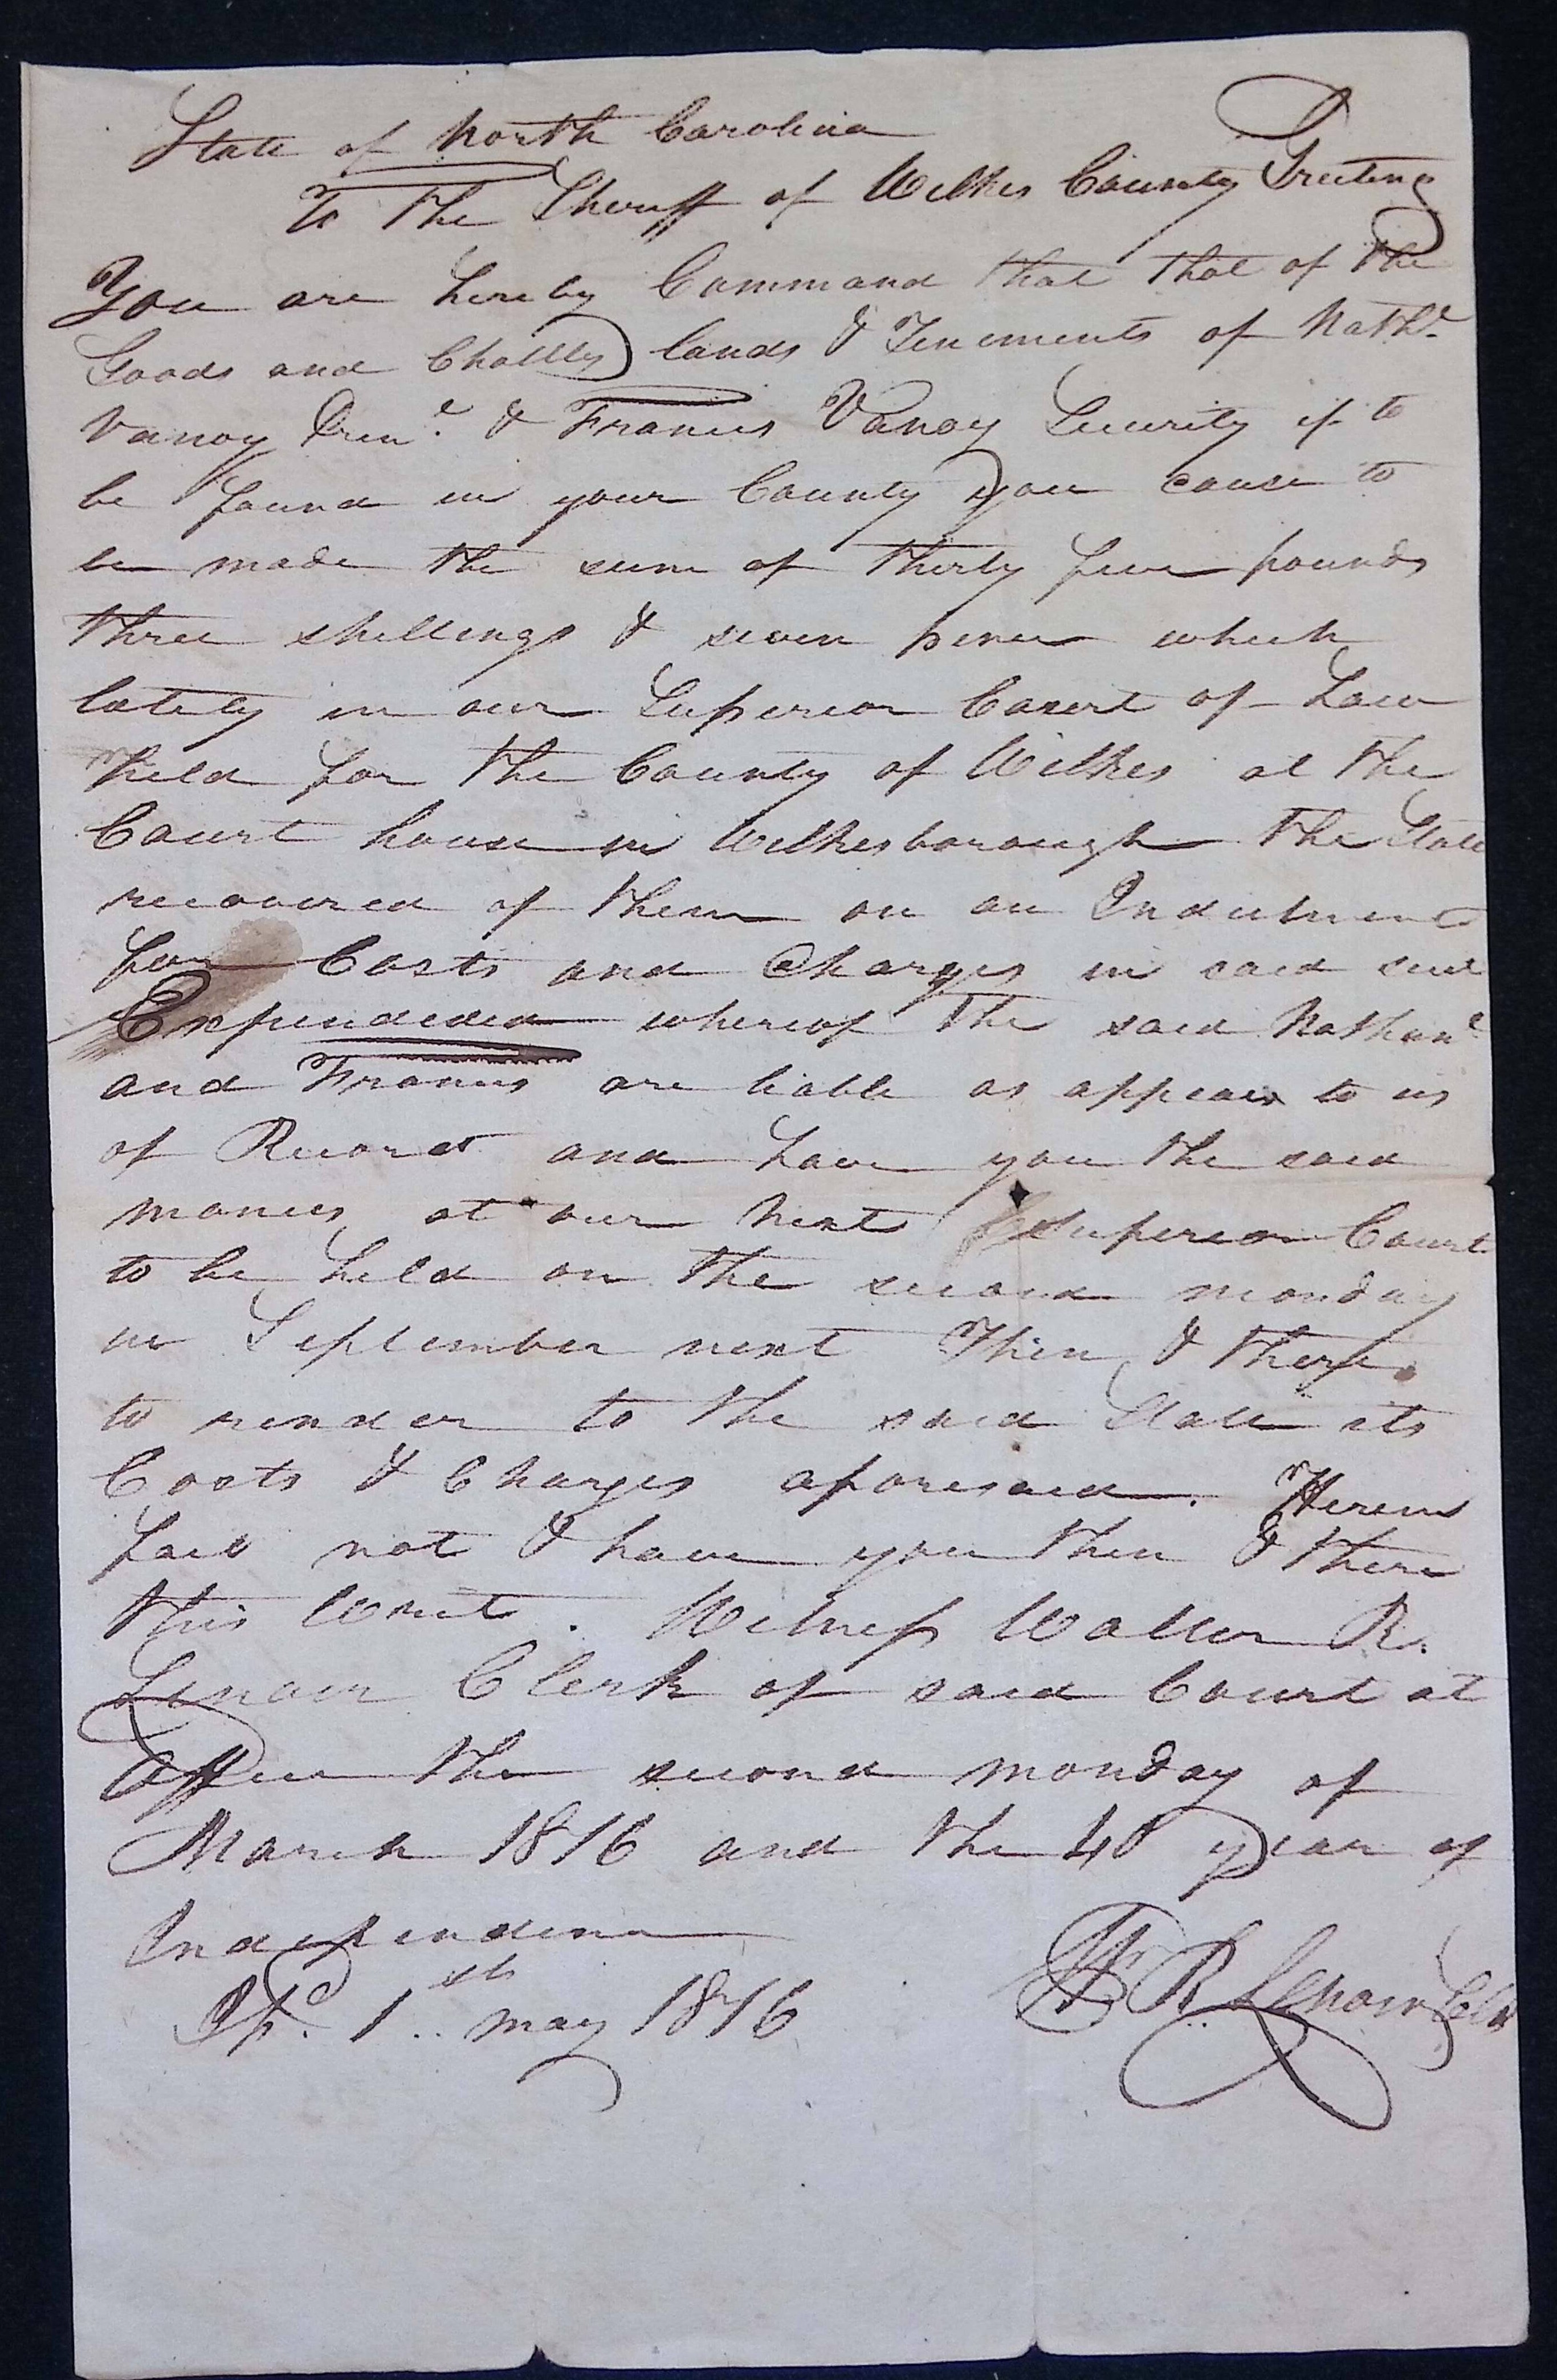 State of North Carolina
To The Sheriff of Wilkes County Greeting
You are hereby Command that that of the
Goods and Chattles lands & Tenements of Nathl.
Vanoy & Francis Vanoy Security if to
be found in your County you cause to
be made the sum of thirty five pounds
three shillings & seven pence which
lately in our Superior Court of Law
held for the County of Wilkes at the
Court house in Wilkesborough The State
recovered of them on an Indictment
for Costs and Charges in said suit
Expended whereof the said Nathanl
and Francis are liable as appears to us
of Record and have you the said
monies at our next Superior Court
to be held on the second monday
in September next Then & there
to render to the said State its
Costs & Charges aforesaid. Herein
fail not & have you then & there
this Writ. Witness Walter R.
Lenoir Clerk of said Court at
office the second monday of
March 1816 and the 40 year of
Independence
1st may 1816
W R Lenoir Clk